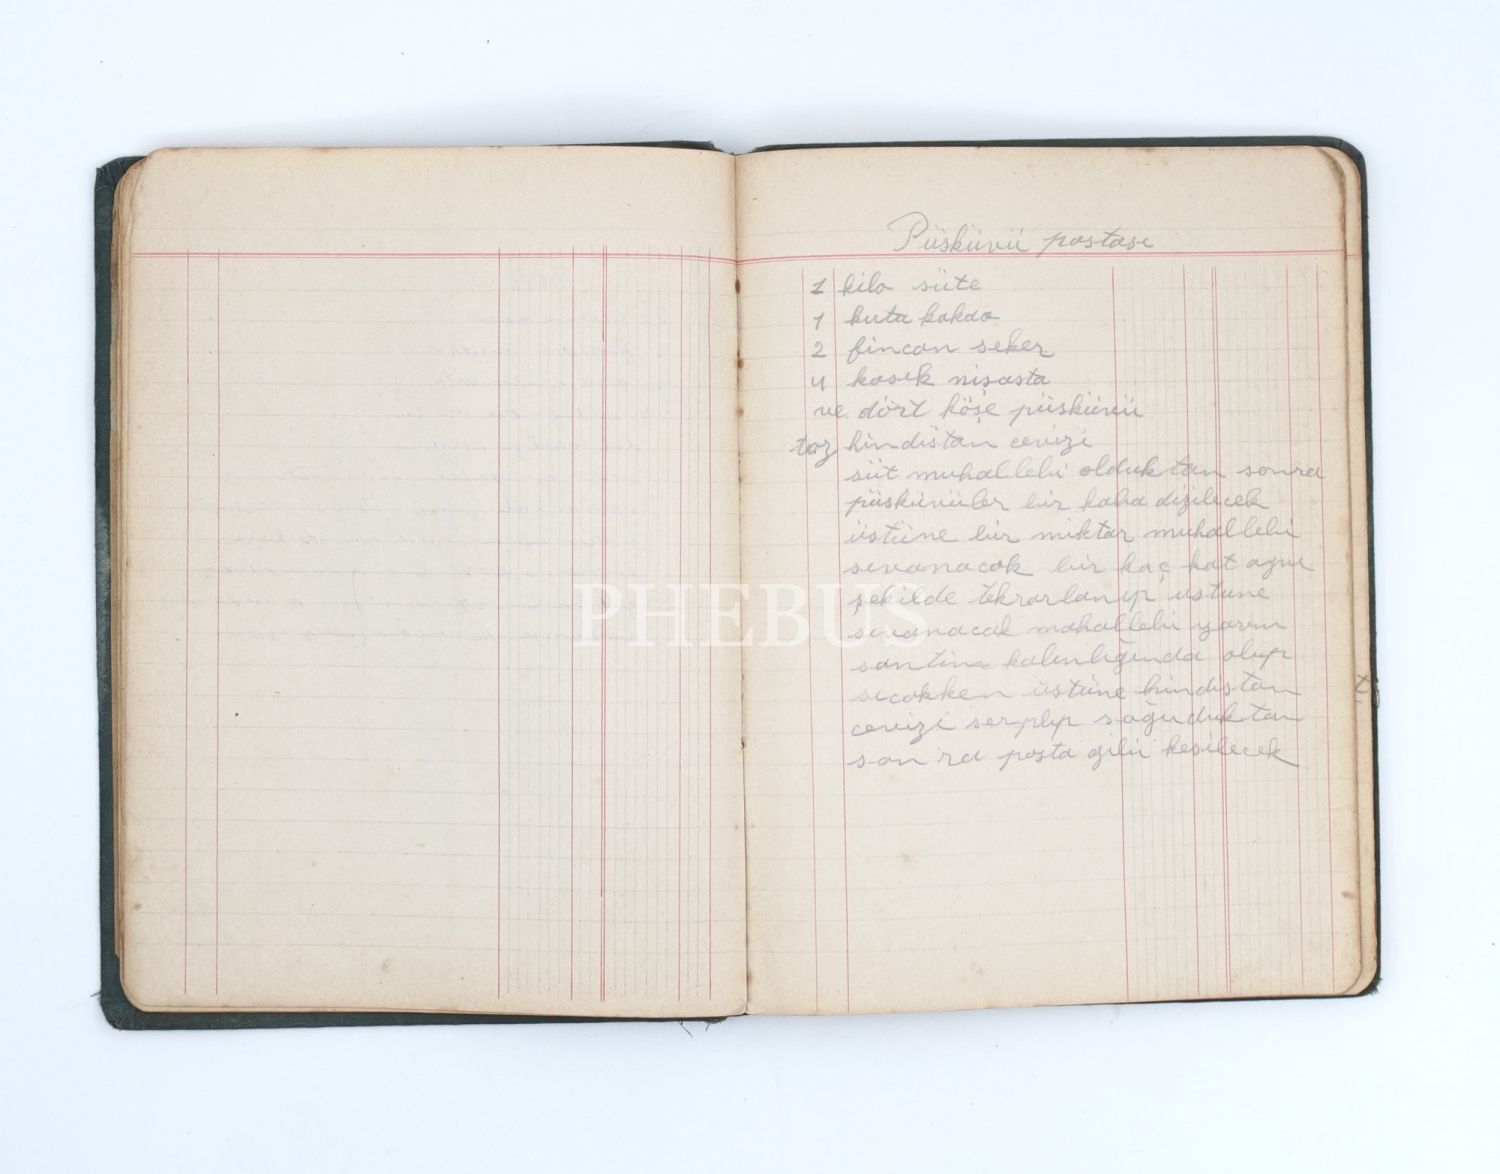 Püsküvü pastası
1 kilo süte
1 kuta kakao
2 fincan seker
4 kasık nişasta
ve dört köşe püsküvü
toz hindistan cevizi
süt muhallebi olduktan sonra
püsküvüler bir kaba dizilecek
üstüne bir miktar muhallebi
sıvanacak bir kaç kat aynı
şekilde tekrarlanıp üstüne
PHEBUS
sıvanacak mahallebi yarım
santim kalınlığında olup
sıcakken üstüne hindistan
cevizi serpilip soğuduktan
sonra pasta gibi kesilecek